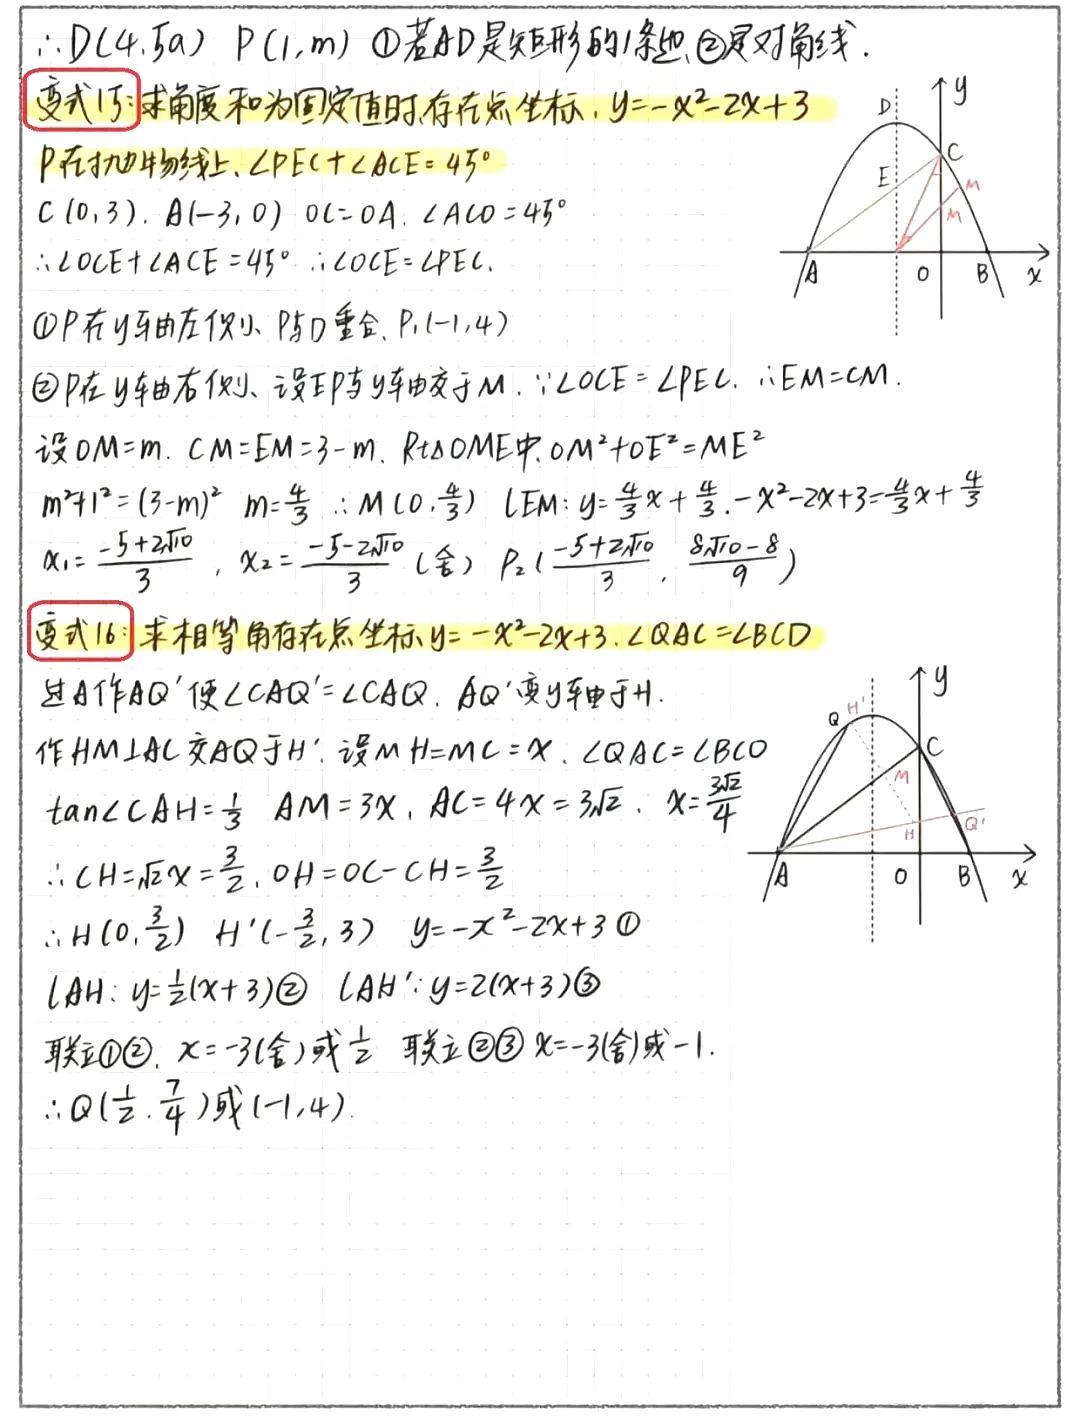 ∴D(4,5a) P(1,m) ①若AD是矩形的1条边、②是对角线.
变式15:求角度和为固定值时,存在点坐标. y=-x²-2x+3
P在抛物线上、∠PEC+∠ACE=45°
C(0,3). A(-3,0) OC=OA. ∠ACO=45°
∴∠OCE+∠ACE=45° ∴∠OCE=∠PEC.
①P在y轴左侧、P与D重合、P₁(-1,4)
②P在y轴右侧、设EP与y轴交于M. ∵∠OCE=∠PEC. ∴EM=CM.
设OM=m. CM=EM=3-m. Rt△OME中.OM²+OE²=ME²
m²+1²=(3-m)² m=4/3 ∴M(0,4/3) lEM: y=4/3x+4/3. -x²-2x+3=4/3x+4/3
x₁=(-5+2√10)/3 , x₂=(-5-2√10)/3 (舍) P₂((-5+2√10)/3, (8√10-8)/9)
变式16:求相等角存在点坐标 y=-x²-2x+3.∠QAC=∠BCO
过A作AQ'使∠CAQ'=∠CAQ. AQ'交y轴于H.
作HM⊥AC交AQ于H'. 设MH=MC=x. ∠QAC=∠BCO
tan∠CAH=1/3 AM=3x, AC=4x=3√2. x=3√2/4
∴CH=√2x=3/2, OH=OC-CH=3/2
∴H(0,3/2) H'(-3/2,3) y=-x²-2x+3①
lAH: y=1/2(x+3)② lAH': y=2(x+3)③
联立①②. x=-3(舍)或1/2 联立②③ x=-3(舍)或-1.
∴Q(1/2.7/4)或(-1,4).
D
y
C
E
M
M
A
O
B
x
y
Q
H'
C
M
H
Q'
A
O
B
x